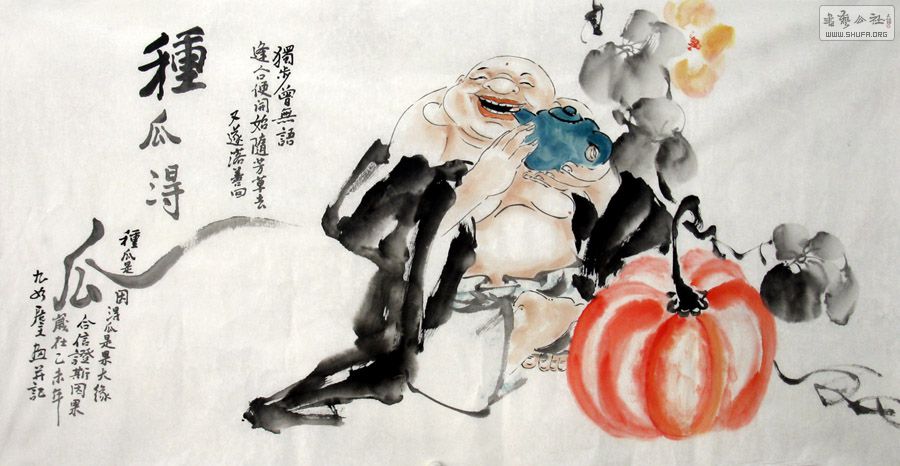 種瓜得瓜
獨步曾無語
逢人便開始隨芳草去
又逐落回
種瓜是因得瓜是果大緣
合信證斯因果
歲在乙未年
畫並記
書藝公社
WWW.SHUFA.ORG